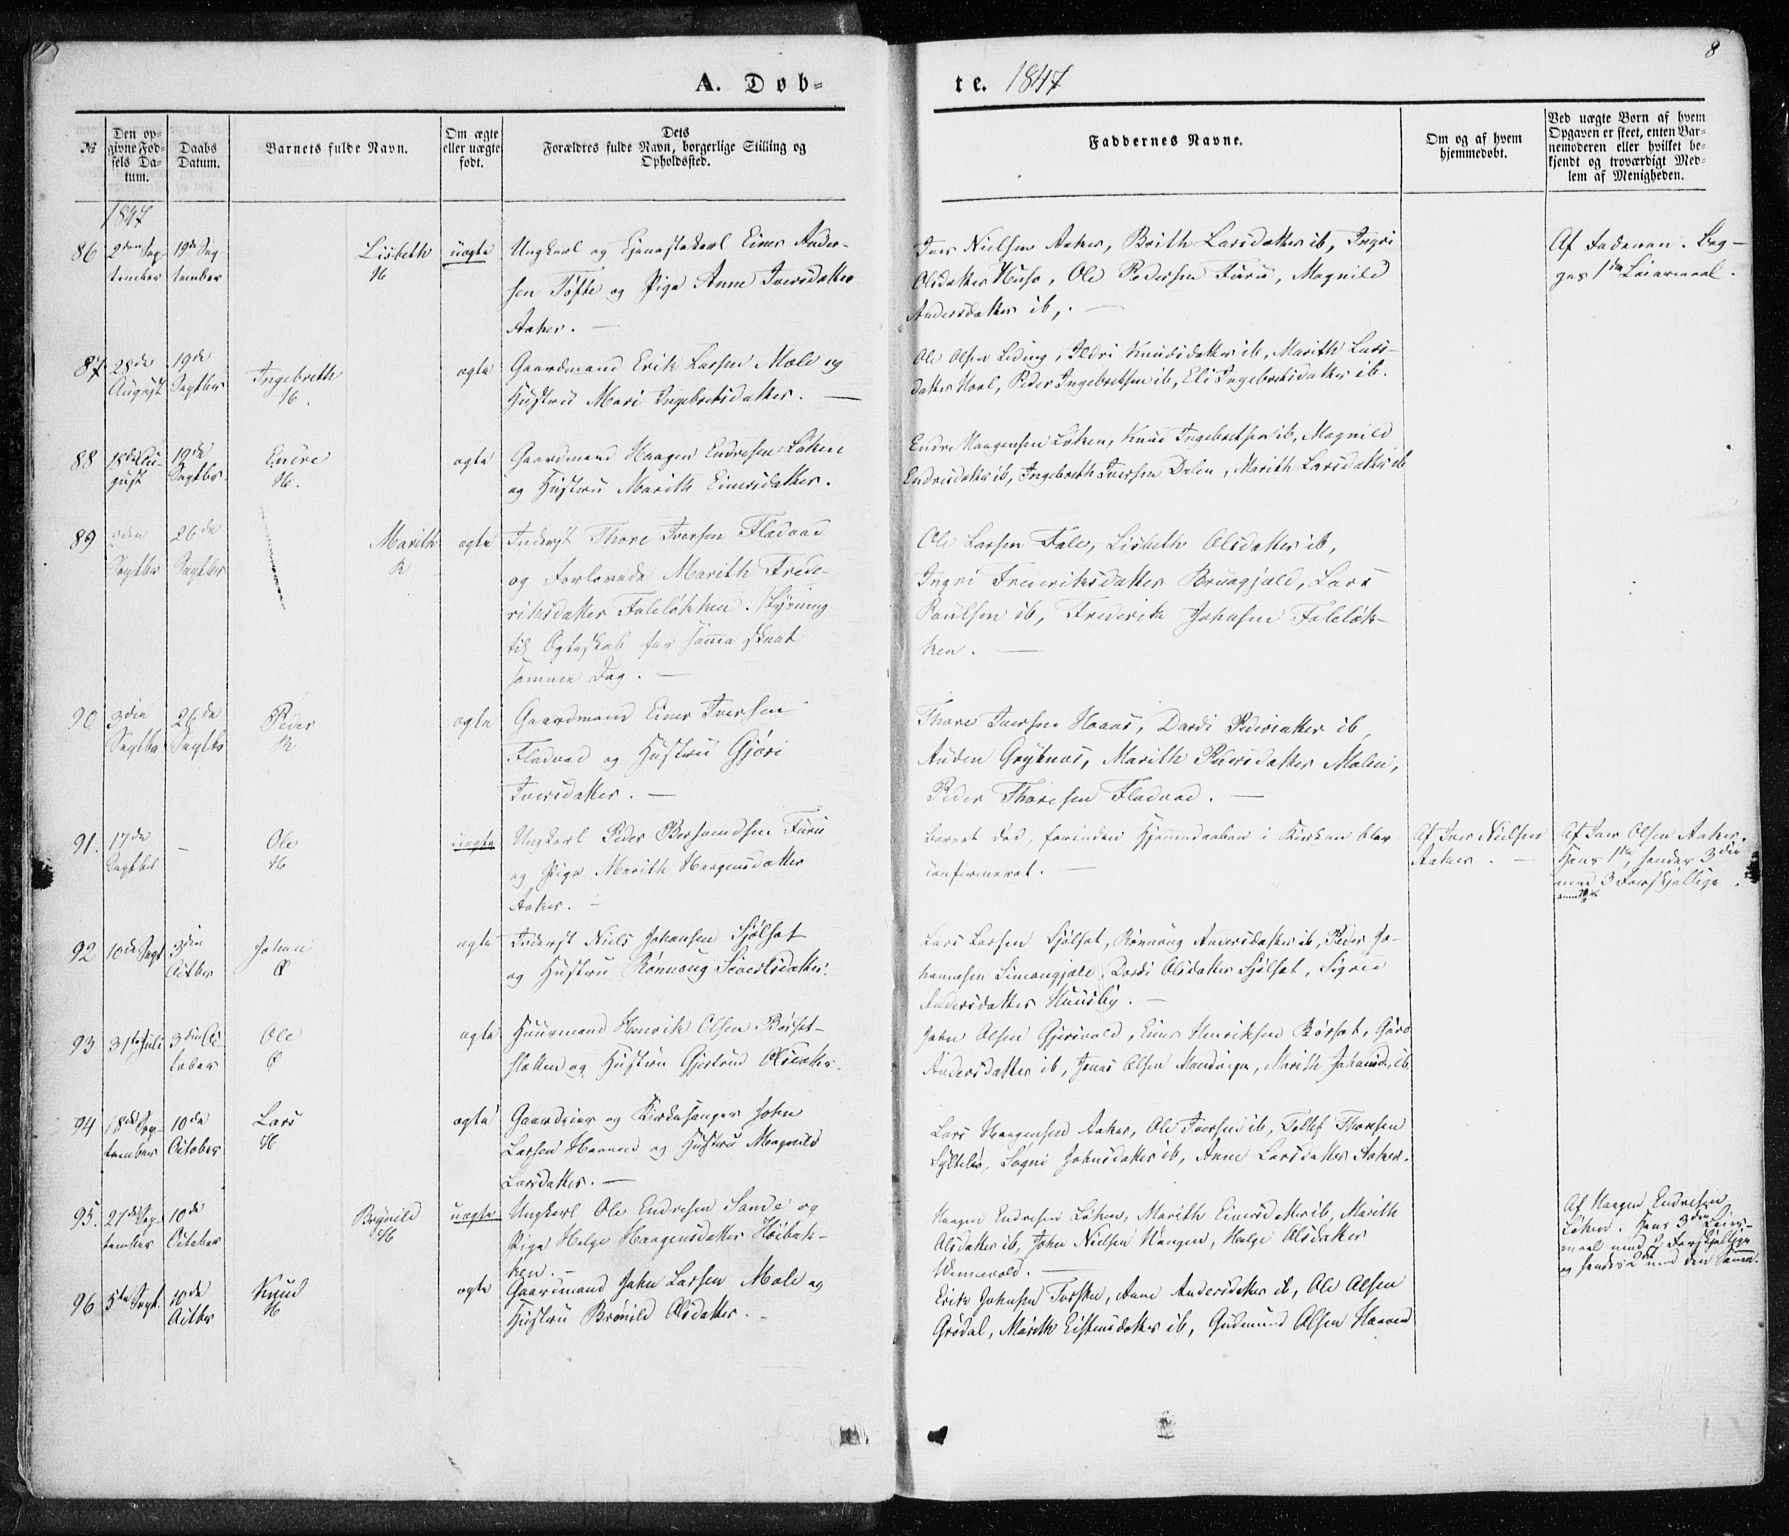 8
A. Døb-
te. 1847
№
Den op-
givne Fød-
sels Da-
tum.
Daabs
Datum.
Barnets fulde Navn.
Om ægte
eller uægte
født.
Dets
Forældres fulde Navn, borgerlige Stilling og
Opholdssted.
Faddernes Navne.
Om og af hvem
hjemmedøbt.
Ved uægte Børn af hvem
Opgaven er skeet, enten Bar-
nemoderen eller hvilket be-
kjendt og troværdigt Med-
lem af Menigheden.
1847
86
2den Sep-
tember
19de Sep-
tember
Lisbeth
H
uægte
Ungkarl og Tjenestekarl Einer Ander-
sen Tofte og Pige Anne Iversdatter
Aaker.
Iver Nielsen Aaker, Brith Larsdatter ib, Ingri
Olsdatter Huso, Ole Pedersen Furu, Magnild
Andersdatter ib,
Af Faderen. Beg-
ges 1ste Leiermaal.
87.
28de
August
19de
Septbr
Ingebreth
H.
ægte
Gaardmand Erik Larsen Mæle og
Hustru Mari Ingebretsdatter.
Ole Olsen Leding, Ildri Knudsdatter ib, Marith Lars-
datter Hoel, Peder Ingebretsen ib, Eli Ingebretsdatter ib.
88
18de Au-
gust
19de
Septbr
Endre
H.
ægte
Gaardmand Haagen Endresen Løken
og Hustru Marith Einersdatter.
Endre Haagensen Løken, Knud Ingebretsen ib, Magnild
Endresdatter ib, Ingebreth Iversen Dalen, Marith Larsdatter ib
89
Septbr
26de
Septbr
Marith
R
ægte
Inderst Thore Iversen Fladvad
og Forlovede Marith Frede-
riksdatter Faleløkken. Lysning
til Ægteskab for samme skeet
samme Dag.
Ole Larsen Fale, Lisbeth Olsdatter ib,
Ingri Frederiksdatter Bruagjæld, Lars
Paulsen ib, Frederik Johnsen Faleløk-
ken.
90
3die
Septbr
26de
Septbr
Peder
R
ægte
Gaardmand Einer Iversen
Fladvad og Hustru Gjøri
Iversdatter.
Thore Iversen Haaas, Dordi Pedersdatter ib,
Auden Grythaas, Marith Pedersdatter Molen,
Peder Thoresen Fladvad.
91.
17de
Septbr
Ole
H
uægte
Ungkarl Peder Bersvendsen Furu
og Pige Marith Haagensdatter
Aaker.
Barnet død, forinden Hjemmedaaben i Kirken blev
confirmeret.
Af Iver Nielsen
Aaker.
Af Iver Olsen Aaker.
Hans 1ste, hendes 3die
med 3 Forskjellige
92
10de Sept
3die
Octbr
Johan
Ø
ægte
Inderst Niels Johansen Sjølset
og Hustru Rønnaug Sivertsdatter.
Lars Larsen Sjølset, Rønnaug Andersdatter ib, Peder Jo-
hannesen Simongjæld, Dordi Olsdatter Sjølset, Sigrid
Andersdatter Huusby.
93
31te Juli
3die Oc-
tober
Ole
Ø
ægte
Huusmand Henrik Olsen Børset-
sletten og Hustru Gjertrud Olsdatter.
John Olsen Gjersvold, Einer Henriksen Børset, Guro
Andersdatter ib, Jonas Olsen Mandviga, Marith Johansd. ib
94
18de Sep-
tember
10de
October
Lars
H
ægte
Gaardeier og Kirkesanger John
Larsen Hoven og Hustru Magnild
Larsdatter.
Lars Haagensen Aaker, Ole Iversen ib, Tollef Thoresen
Syltebø, Sigri Johnsdatter ib, Anne Larsdatter Aaker.
95.
27de Sep-
tember
10de
October
Brynild
H
uægte
Ungkarl Ole Endresen Sande og
Pige Helge Haagensdatter Høibak-
ken.
Haagen Endresen Løken, Marith Einersdatter ib, Marith
Olsdatter ib, John Nielsen Hangen, Helge Olsdatter
Wennevold.
Af Haagen Endresen
Løken. Hans 3die Leier-
maal med 2 Forskjellige
og hendes 2det med den Samme.
96
5te Sept.
10de
Octbr
Knud
H
ægte
Gaardmand John Larsen Mæle og
Hustru Brønild Olsdatter.
Erik Johnsen Torske, Anne Andersdatter ib, Ole Olsen
Grødal, Marith Eistensdatter ib, Gudmund Olsen Hoven